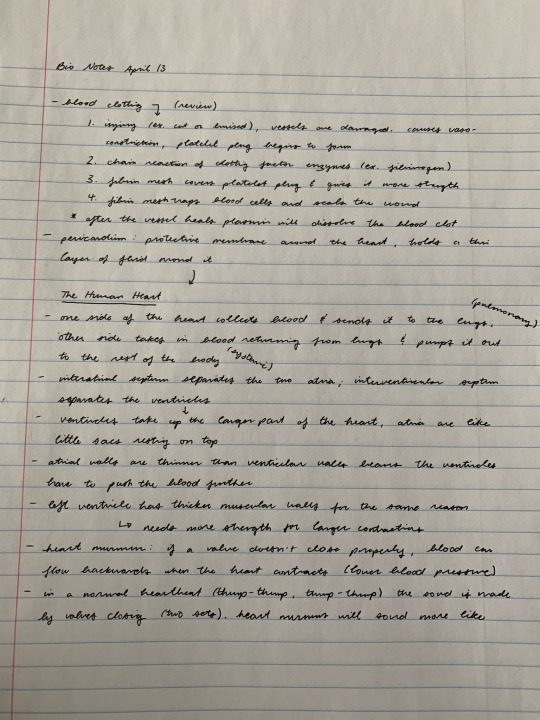 Bio Notes April 13
- blood clotting → (review)
1. injury (ex. cut or bruised), vessels are damaged. causes vaso-
constriction, platelet plug begins to form
2. chain reaction of clotting factor enzymes (ex. fibrinogen)
3. fibrin mesh covers platelet plug & gives it more strength
4. fibrin mesh traps blood cells and seals the wound
* after the vessel heals plasmin will dissolve the blood clot
- pericardium: protective membrane around the heart, holds a thin
layer of fluid around it
↓
The Human Heart
- one side of the heart collects blood & sends it to the lungs, (pulmonary)
other side takes in blood returning from lungs & pumps it out
to the rest of the body (systemic)
- interatrial septum separates the two atria; interventricular septum
separates the ventricles
↓
- ventricles take up the larger part of the heart, atria are like
little sacs resting on top
- atrial walls are thinner than ventricular walls because the ventricles
have to push the blood further
- left ventricle has thicker muscular walls for the same reason
↳ needs more strength for larger contractions
- heart murmur: if a valve doesn't close properly, blood can
flow backwards when the heart contracts (lower blood pressure)
- in a normal heartbeat (thump-thump, thump-thump) the sound is made
by valves closing (two sets). heart murmurs will sound more like